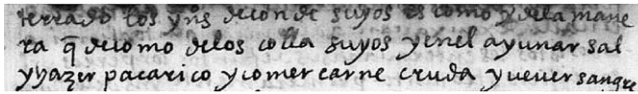 terrado los yn̄s deconde suyos es como y dela mane
ra q̃ decomo delos colla suyos y enel ayunar sal
y hazer pacarico y comer carne cruda y uever sangre